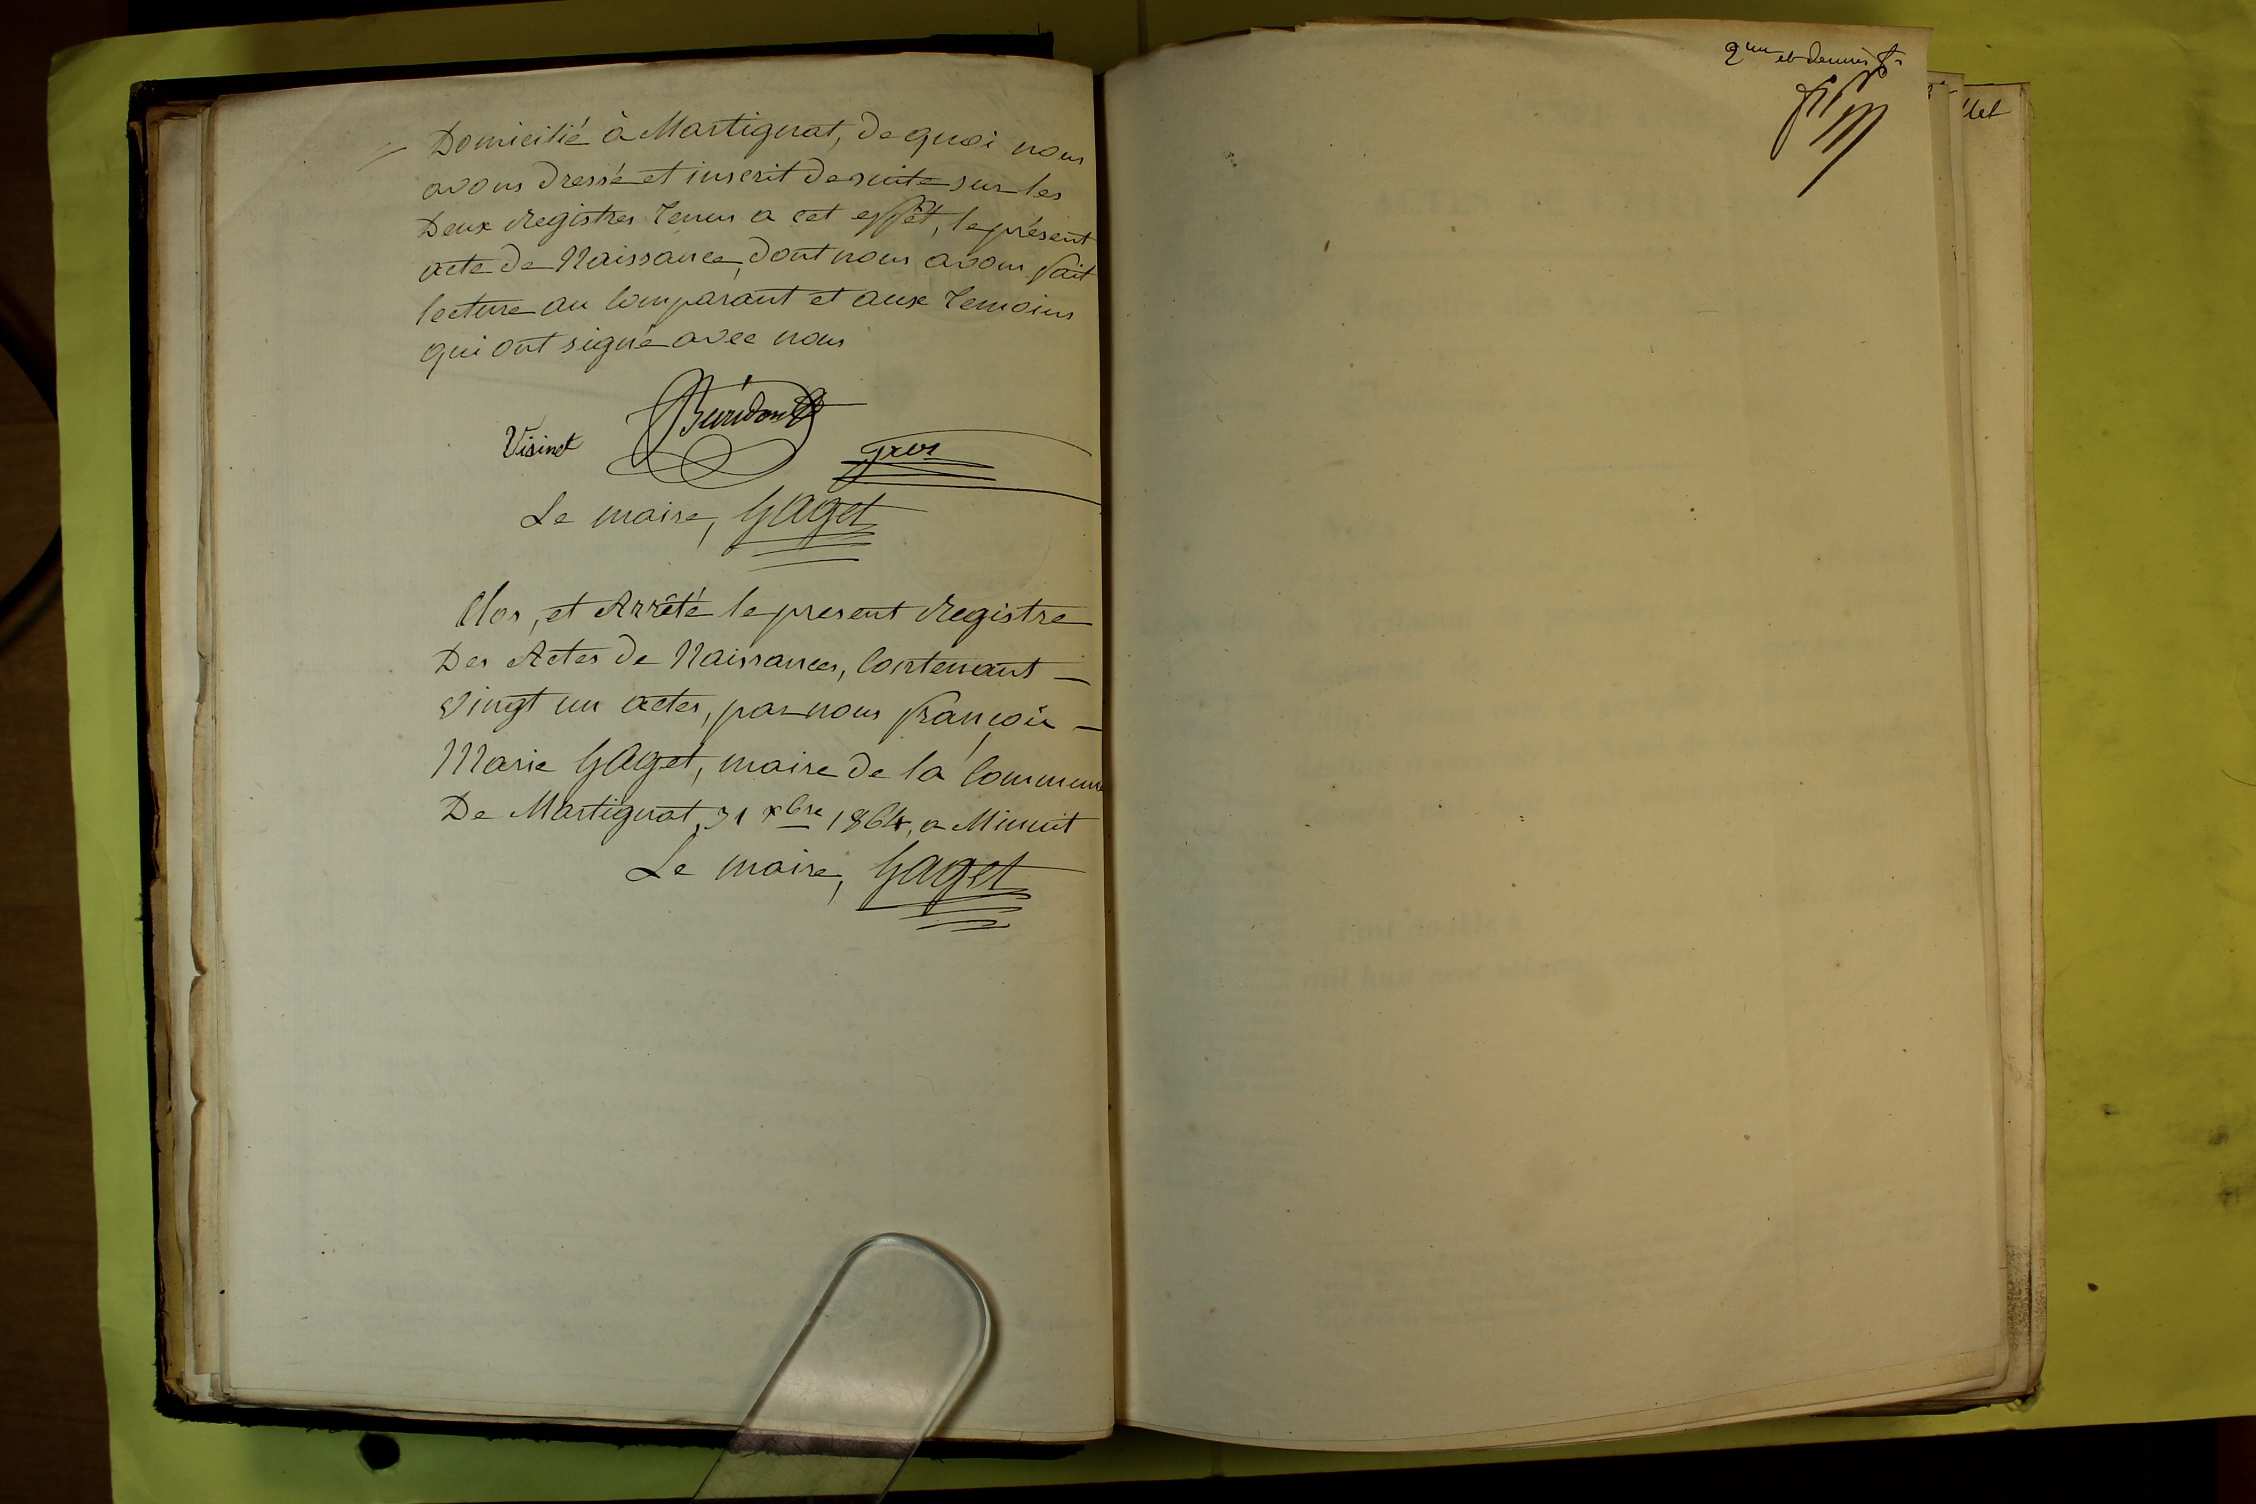 Domicilié à Martignat, de quoi nous
avons dressé et inscrit de suite sur les
Deux Registres tenus a cet effêt, le présent
acte de Naissance, dont nous avons fait
lecture au Comparant et aux temoins
qui ont signé avec nous
Visinet
Gros
Le maire, Gaget
Clos, et Arrêté le present Registre
Des Actes de Naissances, Contenant —
Vingt un actes, par nous françois —
Marie Gaget, maire de la Commune
De Martignat, 31 xbre 1864, a Minuit
Le maire, Gaget
et dernier
llet